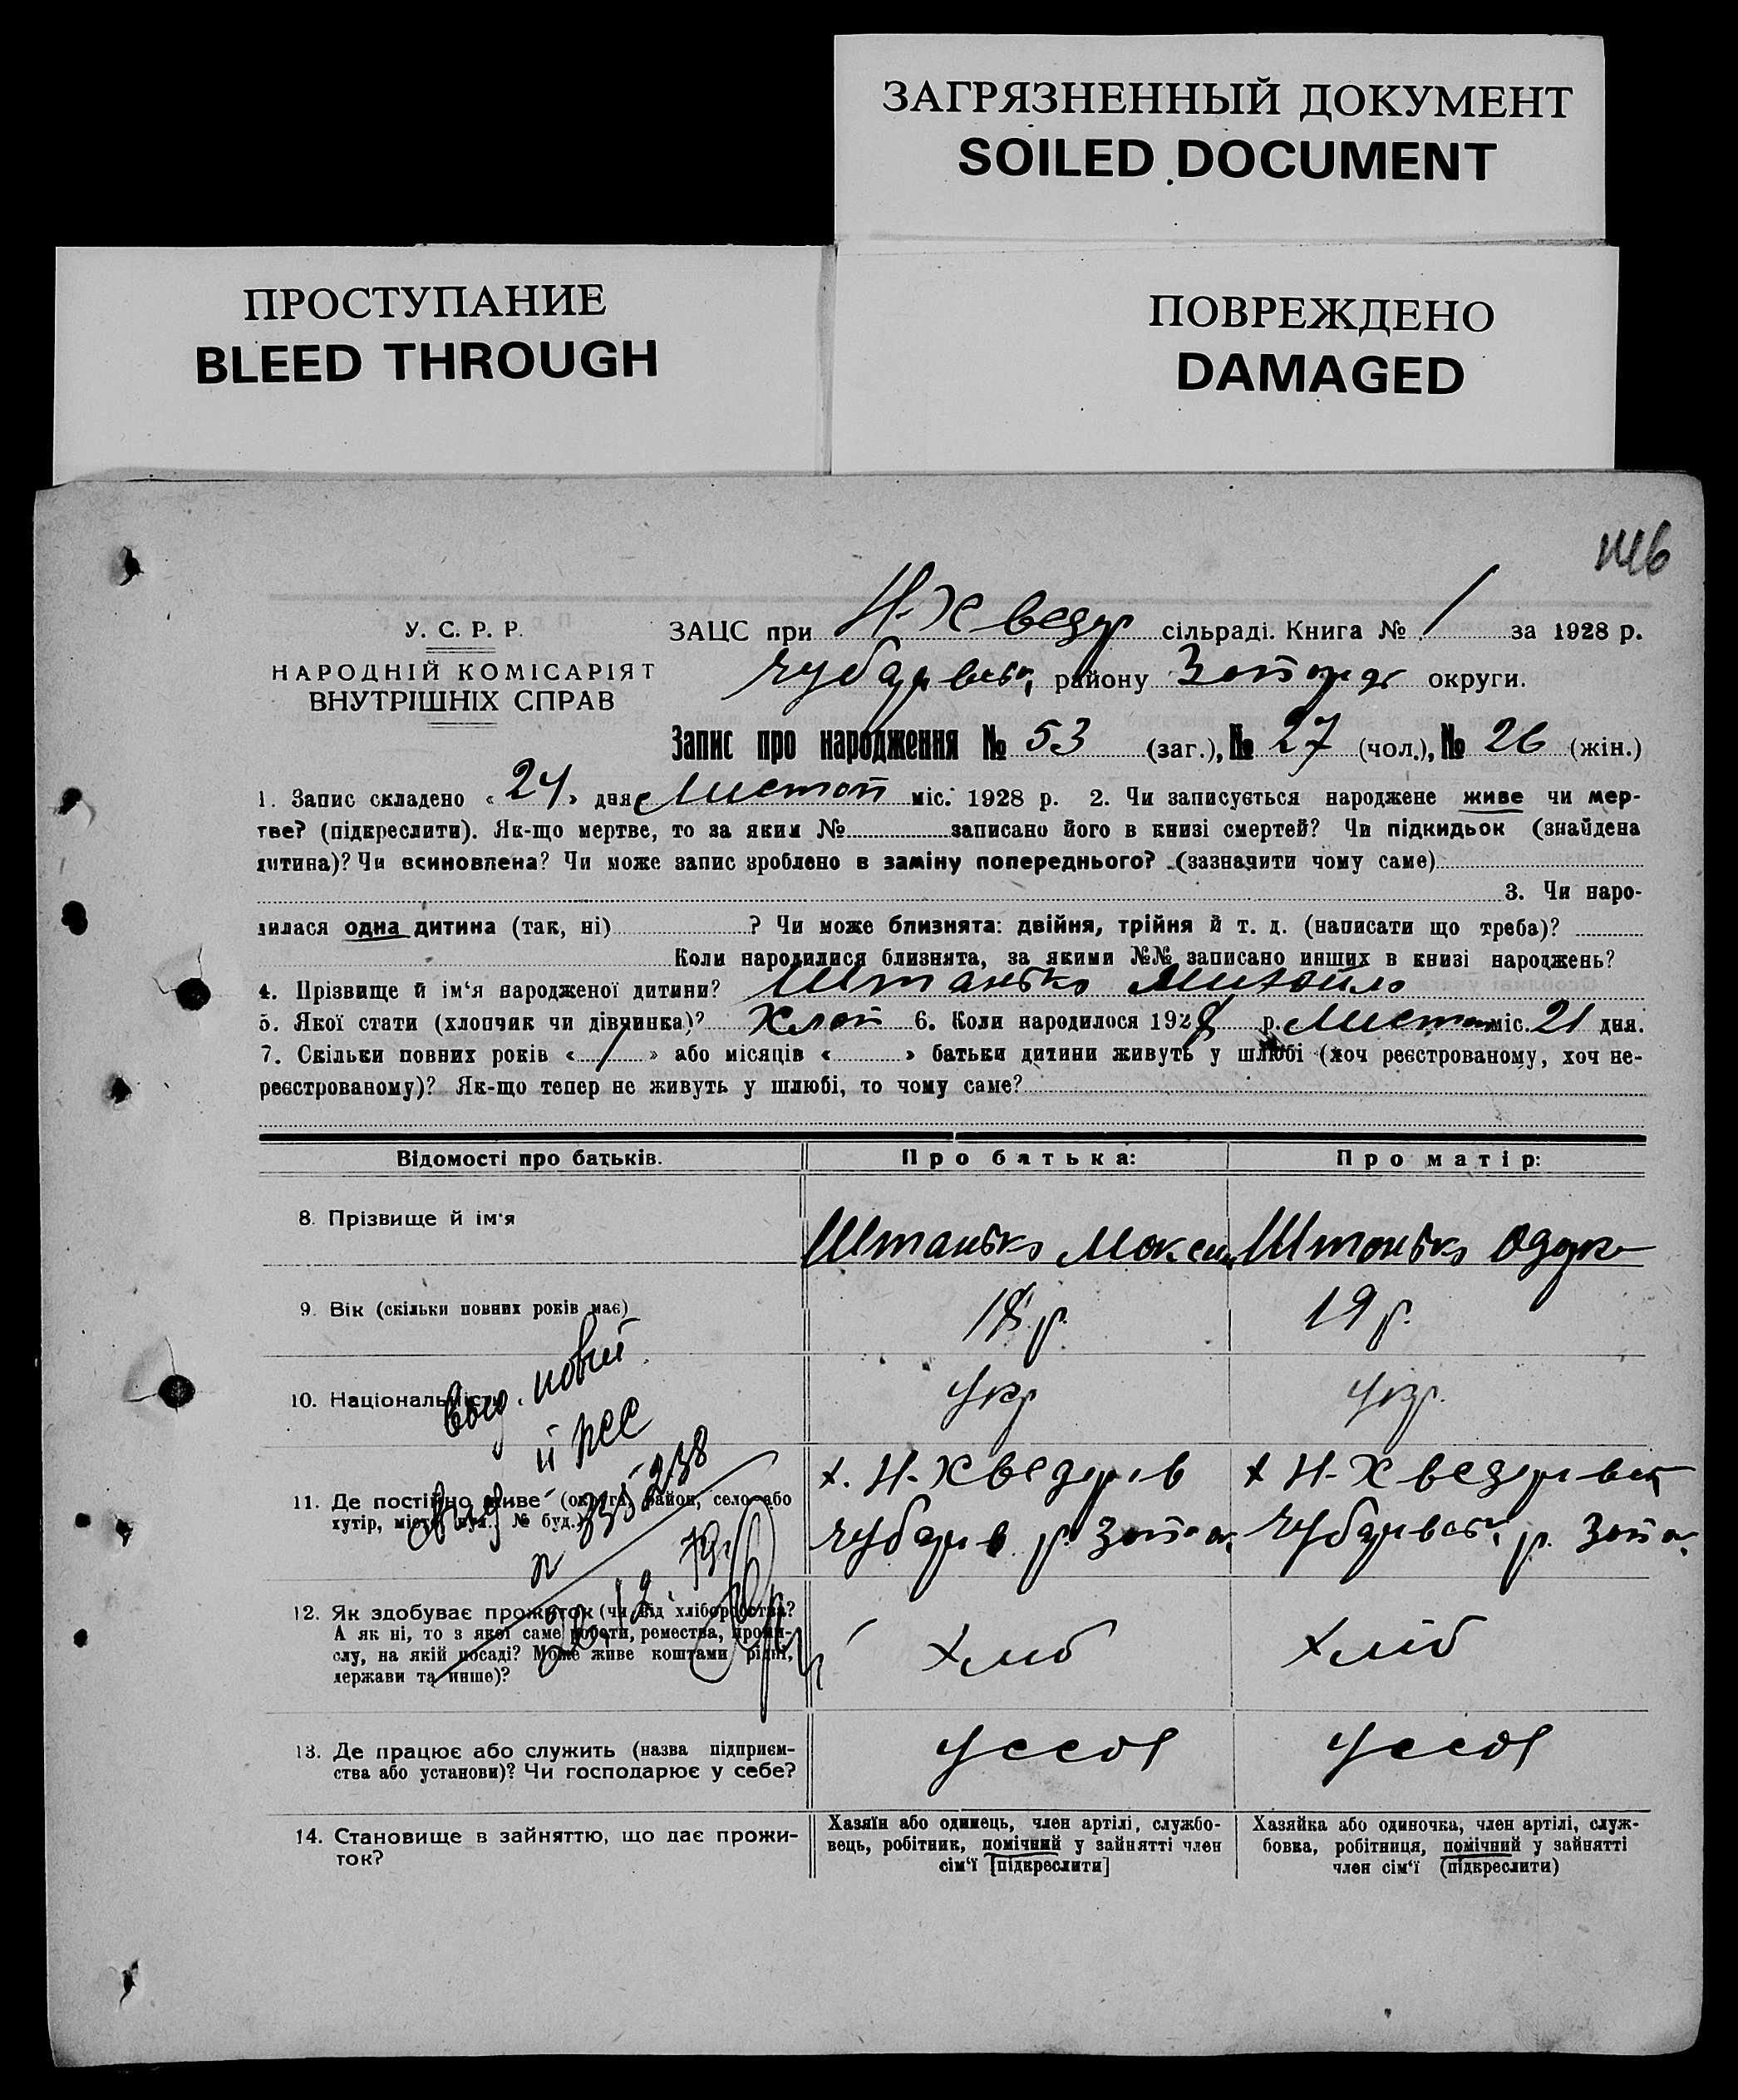 ЗАГРЯЗНЕННЫЙ ДОКУМЕНТ
SOILED DOCUMENT
ПРОСТУПАНИЕ
BLEED THROUGH
ПОВРЕЖДЕНО
DAMAGED
У. С. Р. Р.
НАРОДНІЙ КОМІСАРІЯТ
ВНУТРІШНІХ СПРАВ
ЗАЦС при Н-Хведор сільраді. Книга № 1 за 1928 р.
Чубарівськ району Запоріж округи.
Запис про народження № 53 (заг.), № 27 (чол.), № 26 (жін.)
1. Запис складено « 24 » дня Листоп міс. 1928 р. 2. Чи записується народжене живе чи мер-
тве? (підкреслити). Як-що мертве, то за яким № записано його в книзі смертей? Чи підкидьок (знайдена
дитина)? Чи всиновлена? Чи може запис зроблено в заміну попереднього? (зазначити чому саме)
3. Чи наро-
дилася одна дитина (так, ні) ? Чи може близнята: двійня, трійня й т. д. (написати що треба)?
Коли народилися близнята, за якими №№ записано инших в книзі народжень?
4. Прізвище й ім‘я народженої дитини? Штанько Михайло
5. Якої статі (хлопчик чи дівчинка)? Хлоп 6. Коли народилося 1928 р. Листоп міс. 21 дня.
7. Скільки повних років « 1 » або місяців « » батьки дитини живуть у шлюбі (хоч реєстрованому, хоч не-
реєстрованому)? Як-що тепер не живуть у шлюбі, то чому саме?
Відомості про батьків.
Про батька:
Про матір:
8. Прізвище й ім‘я
Штанько Максим
Штанько Одарк
9. Вік (скільки повних років має)
18 р.
19 р.
10. Національність
Укр
Укр.
11. Де постійно живе (округа, район, село або
хутір, місто, вул. № буд.)
х. Н-Хведорів
Чубарів р. Запор
х Н-Хведорівск
Чубарівськ р. Запор
12. Як здобуває прожиток (чи від хліборобства?
А як ні, то з якої саме роботи, ремества, проми-
слу, на якій посаді? Може живе коштами рідні,
держави та инше)?
Хліб
Хліб
13. Де працює або служить (назва підприєм-
ства або установи)? Чи господарює у себе?
У себя
У себя
14. Становище в зайняттю, що дає прожи-
ток?
Хазяїн або одинець, член артілі, службо-
вець, робітник, помічний у зайнятті член
сім‘ї [підкреслити]
Хазяйка або одиночка, член артілі, служ-
бовка, робітниця, помічний у зайнятті
член сім‘ї (підкреслити)